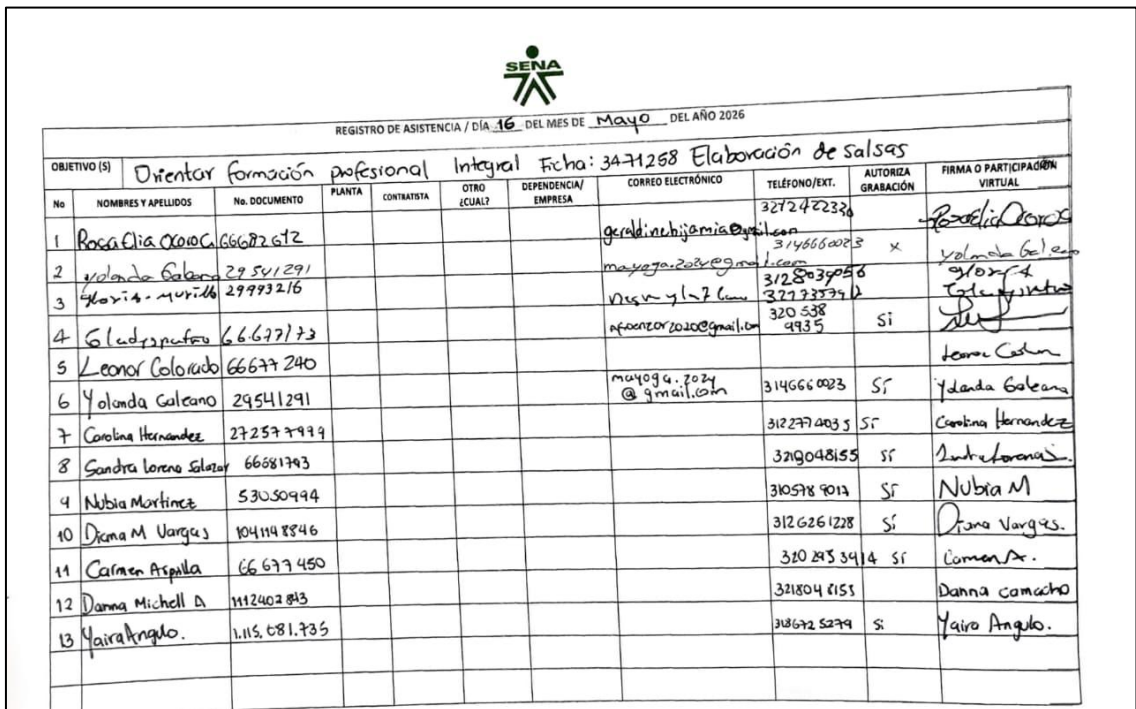 SENA
REGISTRO DE ASISTENCIA / DÍA 16 DEL MES DE Mayo DEL AÑO 2026
OBJETIVO (S) Orientar formación profesional Integral Ficha: 3471258 Elaboración de Salsas
No NOMBRES Y APELLIDOS No. DOCUMENTO PLANTA CONTRATISTA OTRO ¿CUAL? DEPENDENCIA/ EMPRESA CORREO ELECTRÓNICO TELÉFONO/EXT. AUTORIZA GRABACIÓN FIRMA O PARTICIPACIÓN VIRTUAL
1 Rosa Elia 66682672
2 Yolanda Galeano 29541291 mayoga.2024@gmail.com 3146660023 x Yolanda Galeano
3 Gloria Murillo 29993216 3128034056 Gloria
4 66.677173 320 538 9935 Si
5 Leonor Colorado 66677240 Leonor
6 Yolanda Galeano 29541291 mayoga.2024 @gmail.com 3146660023 Sí Yolanda Galeano
7 Carolina Hernandez 272577979 3122774035 Sí Carolina Hernandez
8 Sandra Lorena Salazar 66681793 3218048155 Sí
9 Nubia Martinez 53050994 3105789017 Sí Nubia M
10 Diana M Vargas 1041148846 3126261228 Sí Diana Vargas.
11 Carmen 66677450 320 295 3914 Si Carmen A.
12 Danna Michell 1112402843 3218048155 Danna camacho
13 Yaira Angulo. 1.115.681.735 3186725279 Si Yaira Angulo.